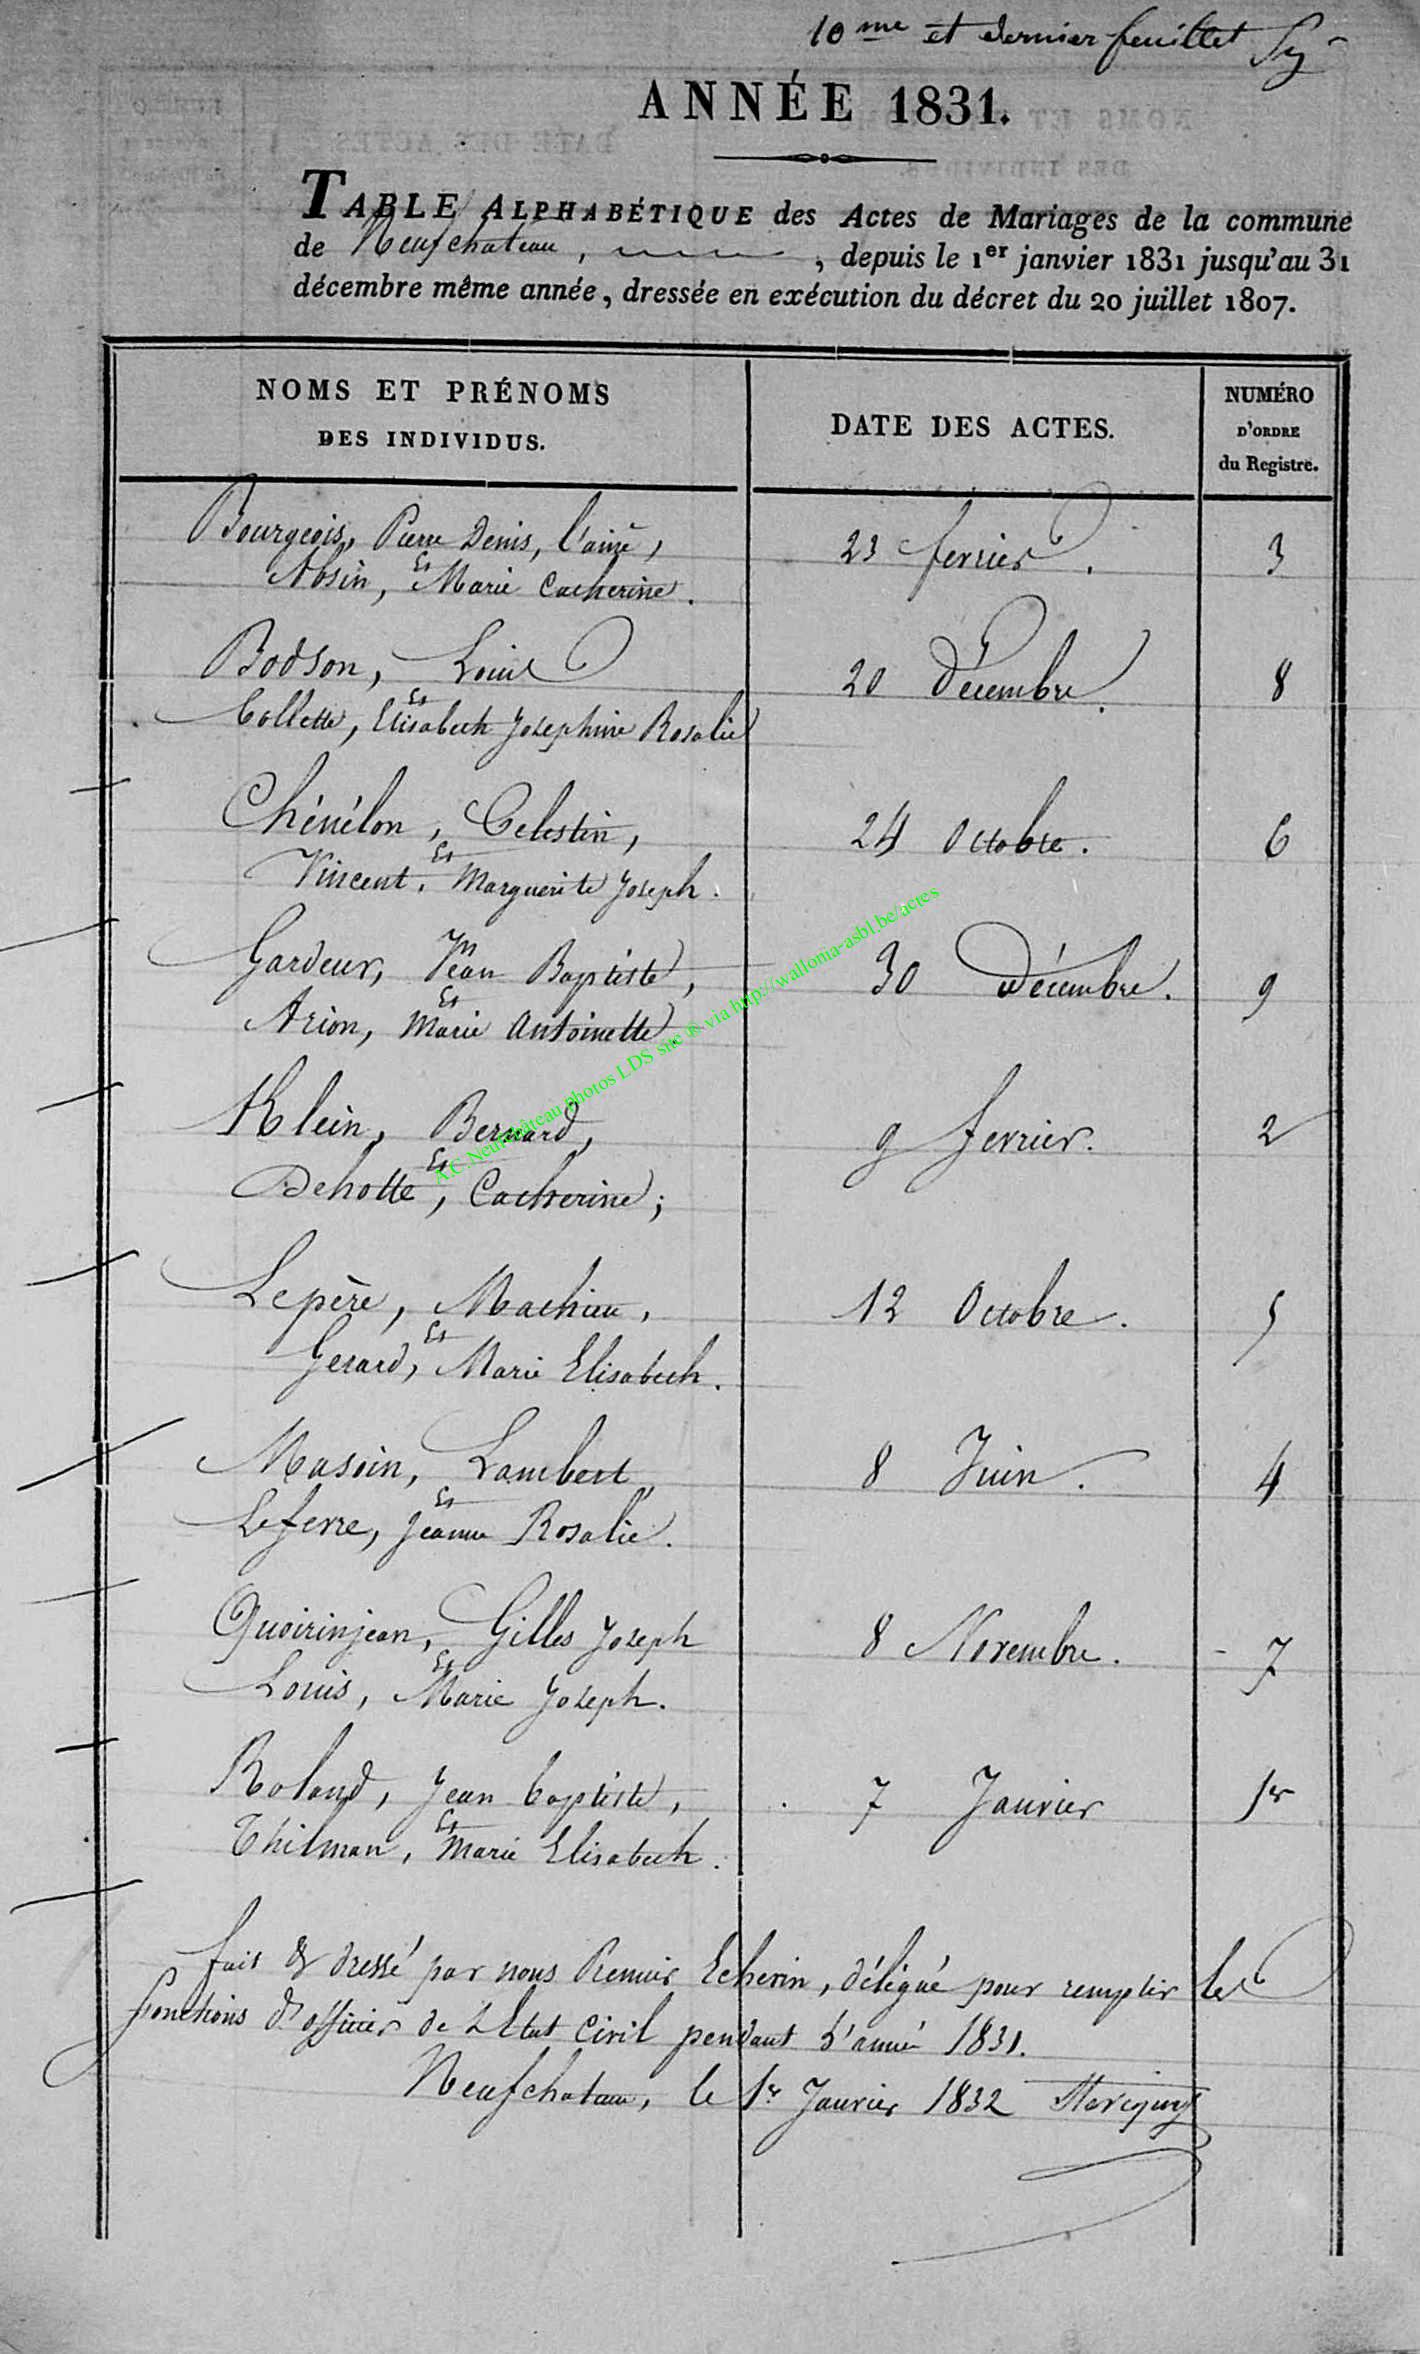 10me et dernier feuillet
ANNÉE 1831.
TABLE ALPHABÉTIQUE des Actes de Mariages de la commune
de Neufchateau, , depuis le 1er janvier 1831 jusqu'au 31
décembre même année, dressée en exécution du décret du 20 juillet 1807.
NOMS ET PRÉNOMS
DES INDIVIDUS.
DATE DES ACTES.
NUMÉRO
D'ORDRE
du Registre.
Bourgeois, Pierre Denis, l'ainé, 23 fevrier. 3
Et
Absin, Marie Catherine.
Bodson, Louis 20 Décembre. 8
Et
Collette, Elisabeth Josephine Rosalie
Chénélon, Celestin, 24 Octobre. 6
Et
Vincent, Marguerite Joseph.
Gardeur, Jean Baptiste, 30 Décembre. 9
Et
Arion, Marie Antoinette
Klein, Bernard, 9 fevrier. 2
Et
Dehotte, Catherine;
Lepère, Mathieu, 12 Octobre. 5
Et
Gerard, Marie Elisabeth.
Masoin, Lambert, 8 Juin. 4
Et
Lefevre, Jeanne Rosalie.
Quoirinjean, Gilles Joseph 8 Novembre. 7
Et
Louis, Marie Joseph.
Roland, Jean baptiste, 7 Janvier 1er
Et
Thilman, Marie Elisabeth.
fait & dressé par nous Premier Echevin, délégué pour remplir les
fonctions d'officier de l'Etat Civil pendant l'année 1831.
Neufchateau, le 1er Janvier 1832
A.C. Neufchâteau photos LDS site ® via http://wallonia-asbl.be/actes